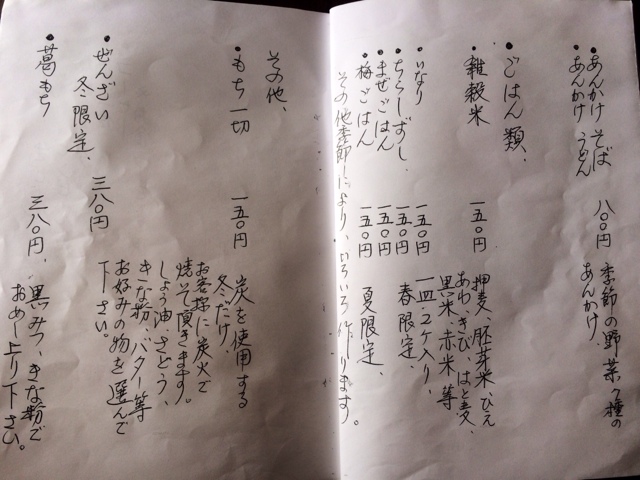 ・あんかけ そば 八〇円 季節の野菜7種の
・あんかけ うどん あんかけ。
・ごはん類、
・雑穀米 一五〇円 押麦、胚芽米、ひえ
あわ、きび、はと麦、
黒米、赤米等
・いなり 一五〇円 一皿、2ケ入り、
・ちらしずし 一五〇円 春限定、
・まぜごはん 一五〇円
・梅ごはん 一五〇円 夏限定、
その他季節により、いろいろ作ります。
その他、
・もち一切 一五〇円 炭を使用する
冬だけ、
お客様に炭火で
焼いて頂きます。
しょう油、さとう、
きな粉、バター等
お好みの物を選んで
下さい。
・ぜんざい 三八〇円
冬限定、
・葛もち 三八〇円、黒みつ、きな粉で
おめし上り下さい。